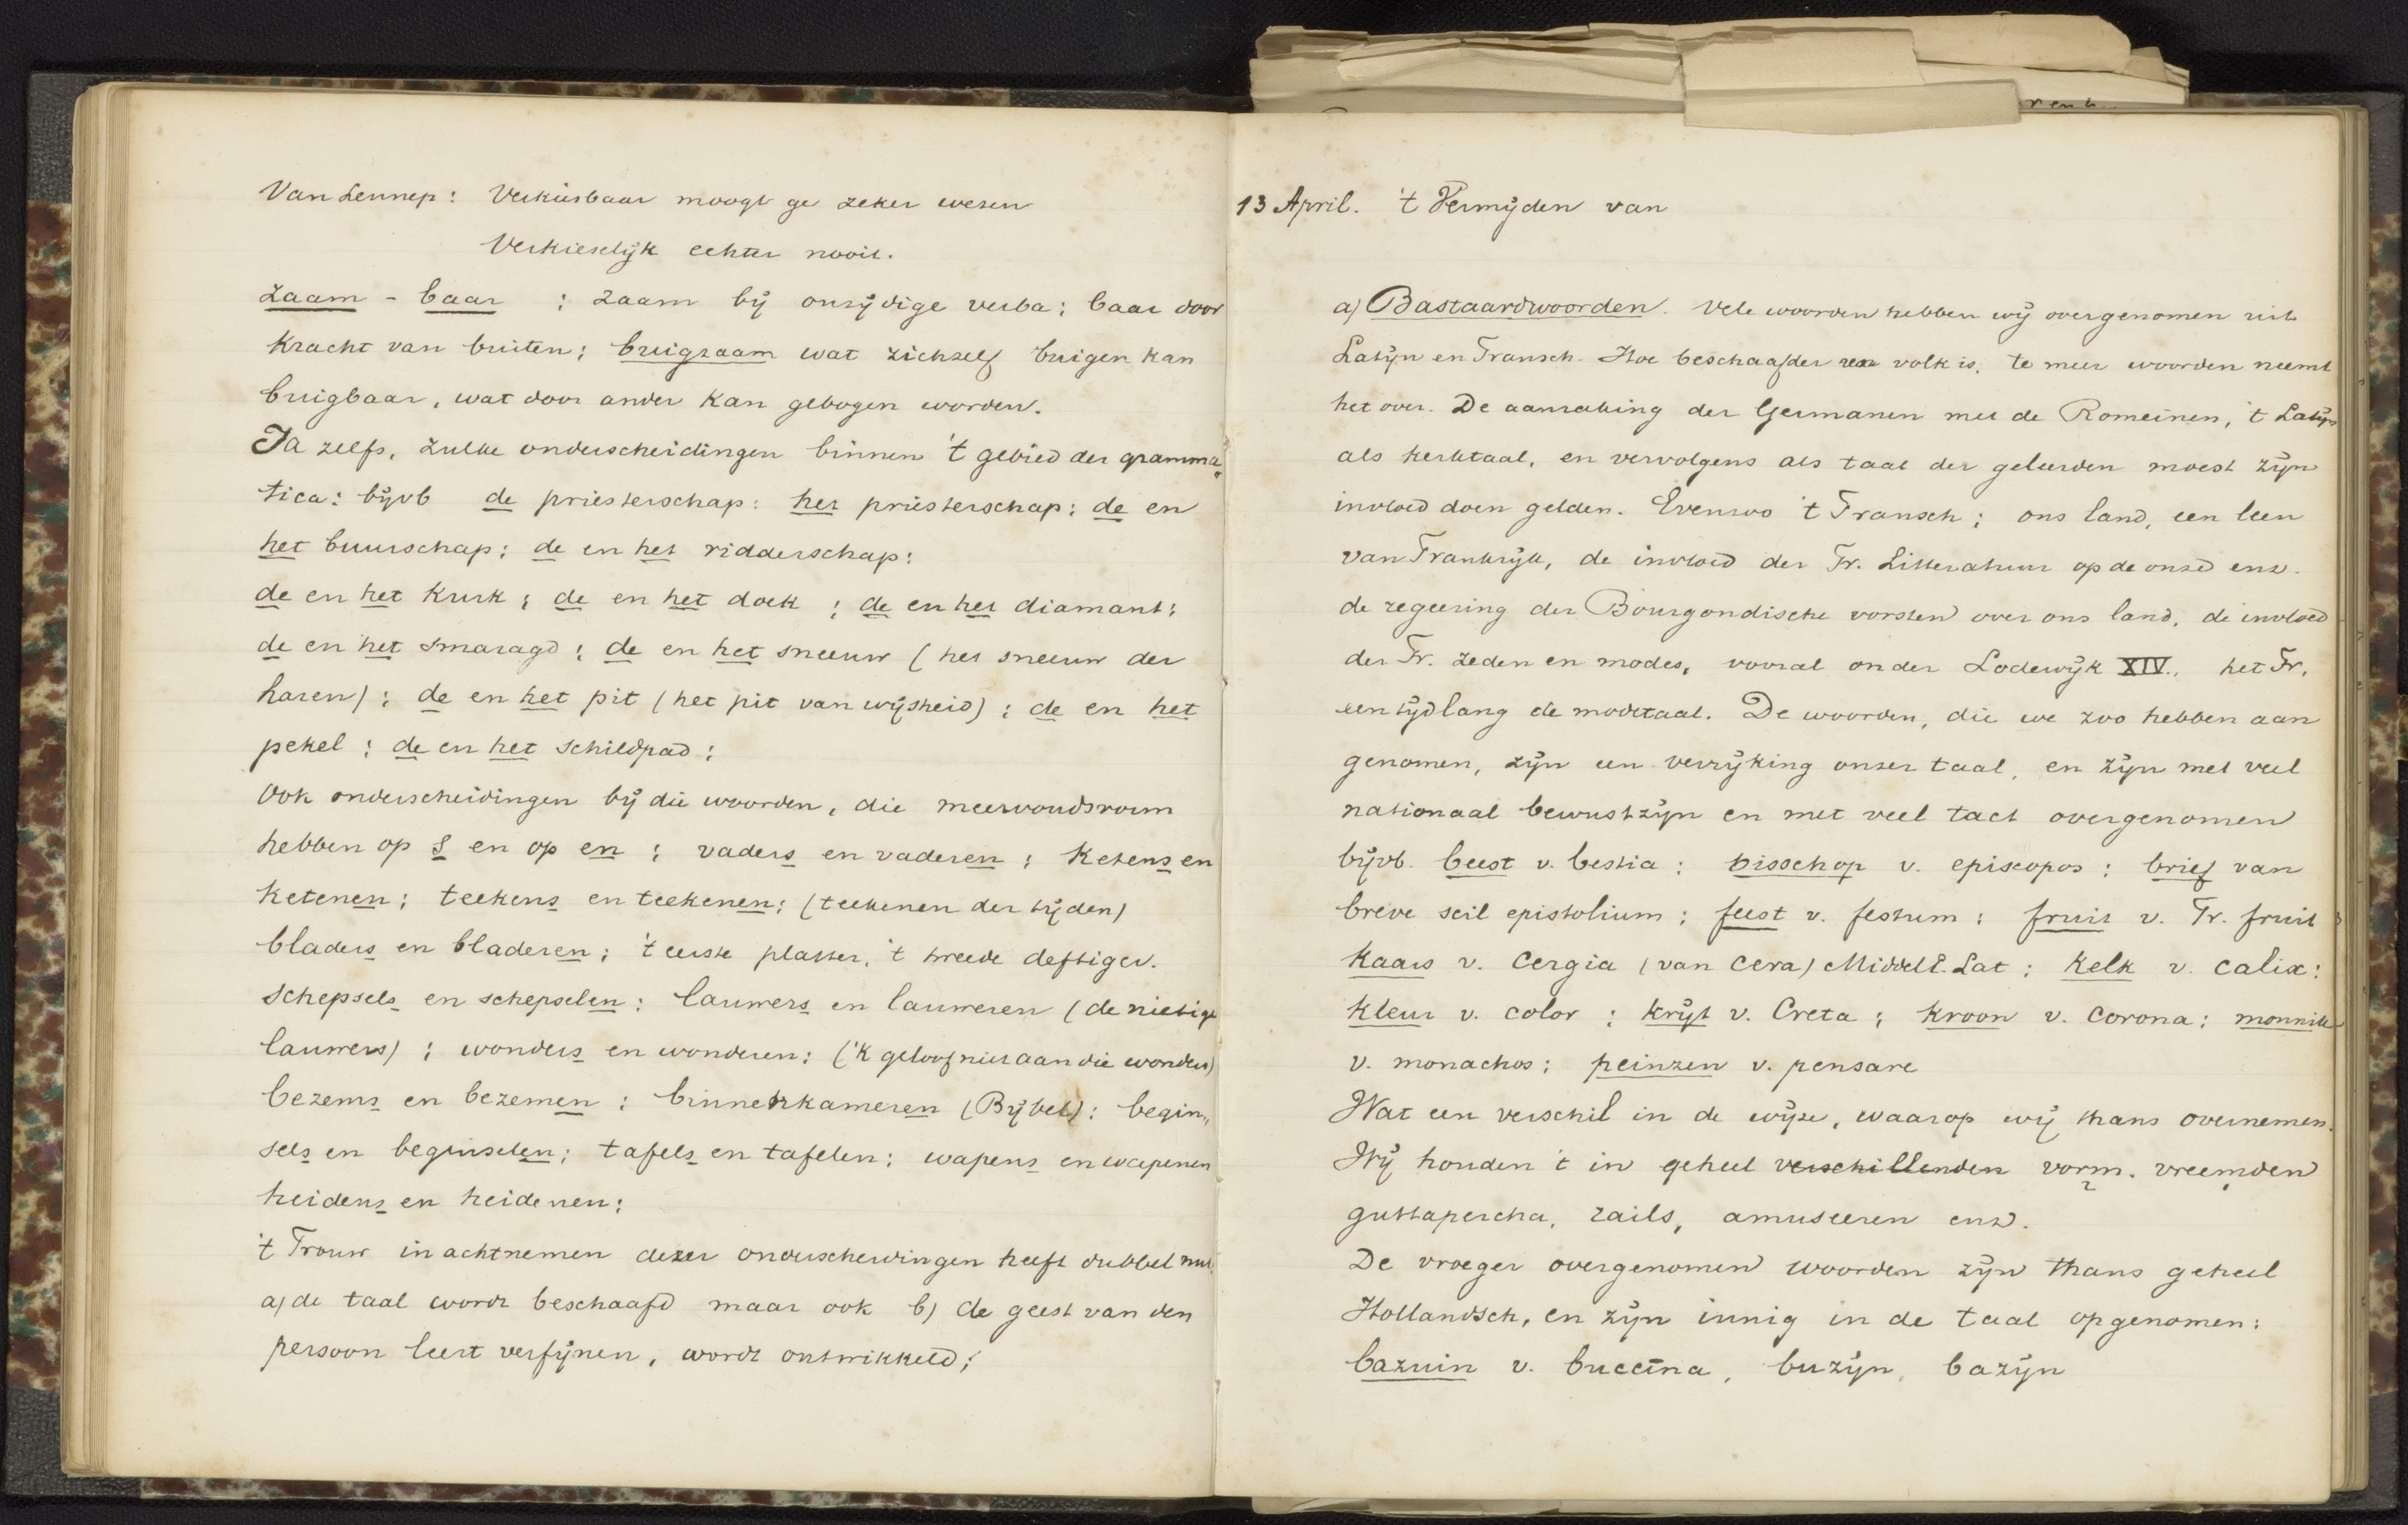 Van Lennep: Verkiesbaar moogt ge zeker wezen
Verkieselijk echter nooit.
zaam - baar : zaam bij onzijdige verba; baar door
kracht van buiten; buigzaam wat zichzelf buigen kan
buigbaar, wat door ander kan gebogen worden.
Ja zelfs, zulke onderscheidingen binnen 't gebied der gramma„
tica: bijvb de priesterschap: het priesterschap; de en
het buurschap; de en het ridderschap:
de en het kurk; de en het doek; de en het diamant;
de en het smaragd; de en het sneeuw (het sneeuw der
haren); de en het pit (het pit van wijsheid); de en het
pekel; de en het schildpad;
Ook onderscheidingen bij die woorden, die meervoudsvorm
hebben op s en op en; vaders en vaderen; Ketens en
ketenen; teekens en teekenen; (teekenen der tijden)
bladers en bladeren; 't eerste platter, 't tweede deftiger.
schepsels en schepselen; lauwers en lauweren (de nietige
lauwers); wonders en wonderen; ('k geloof niet aan die wonders)
bezems en bezemen; binnenkameren (Bijbel); begin„
sels en beginselen; tafels en tafelen; wapens en wapenen
heidens en heidenen;
't Trouw in achtnemen dezer onderscheidingen heeft dubbel nut.
a) de taal wordt beschaafd maar ook b) de geest van den
persoon leert verfijnen, wordt ontwikkeld;
13 April. 't Vermijden van
a) Bastaardwoorden. Vele woorden hebben wij overgenomen uit
Latijn en Fransch. Hoe beschaafder een volk is, te meer woorden neemt
het over. De aanraking der Germanen met de Romeinen, 't Latijn
als kerktaal, en vervolgens als taal der geleerden moest zijn
invloed doen gelden. Evenzoo 't Fransch; ons land, een leen
van Frankrijk, de invloed der Fr. Litteratuur op de onze enz.
de regeering der Bourgondische vorsten over ons land, de invloed
der Fr. zeden en modes, vooral onder Lodewijk XIV., het Fr.
een tijdlang de modetaal. De woorden, die we zoo hebben aan
genomen, zijn een verrijking onzer taal, en zijn met veel
nationaal bewustzijn en met veel tact overgenomen
bijvb. beest v. bestia; bisschop v. episcopos; brief van
breve scil epistolium; feest v. festum; fruit v. Fr. fruit
Kaars v. Cergia (van cera) Middell. Lat; Kelk v. calix;
kleur v. color; krijt v. Creta; kroon v. corona; monnik
v. monachos; peinzen v. pensare
Wat een verschil in de wijze, waarop wij thans overnemen.
Wij houden 't in geheel verschillenden vorm. vreemden
guttapercha, rails, amuseeren enz.
De vroeger overgenomen woorden zijn thans geheel
Hollandsch, en zijn innig in de taal opgenomen;
bazuin v. buccina, buzijn, bazijn